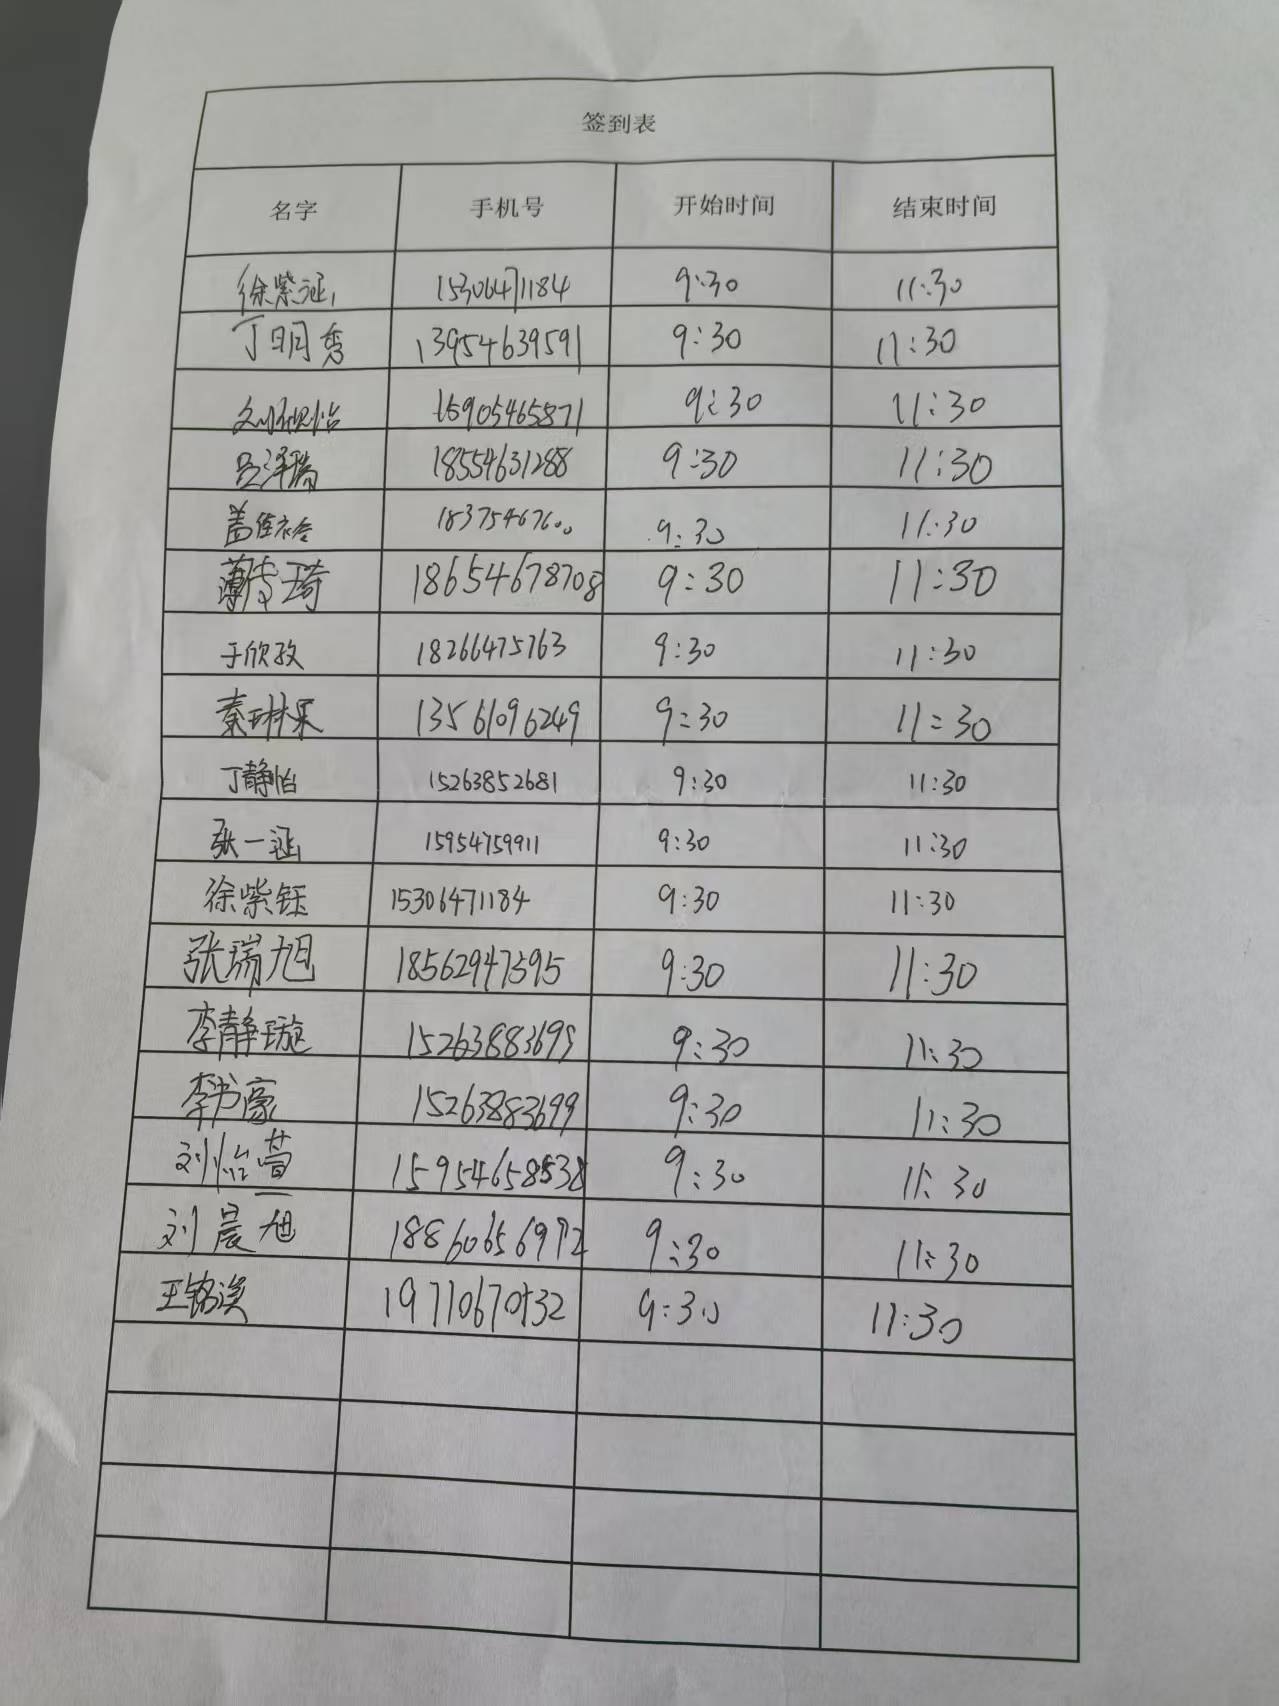 签到表
名字 手机号 开始时间 结束时间
徐紫涵 15306471184 9:30 11:30
丁明秀 13954639591 9:30 11:30
15905465871 9:30 11:30
吕泽瑞 18554631288 9:30 11:30
盖 18375467600 9:30 11:30
薄 琦 18654678708 9:30 11:30
于欣孜 18266475763 9:30 11:30
秦琳果 13561096249 9:30 11:30
丁静怡 15263852681 9:30 11:30
张一涵 15954759911 9:30 11:30
徐紫钰 15306471184 9:30 11:30
张瑞旭 18562947595 9:30 11:30
李静璇 9:30 11:30
李书豪 15263883699 9:30 11:30
刘怡萱 15954658538 9:30 11:30
刘晨旭 9:30 11:30
王铭溪 9:30 11:30